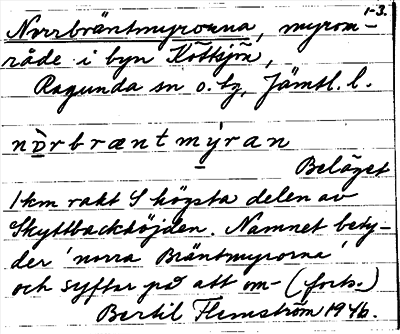 1-3.
Norrbräntmyrorna, myrom-
råde i byn Köttsjön,
Ragunda sn o. tg, Jämtl. l.
nòrbræntmýran
Beläget
1 km rakt S högsta delen av
Skyttbackhöjden. Namnet bety-
der 'norra Bräntmyrorna'
och syftar på att om- (forts.)
Bertil Flemström 1946.